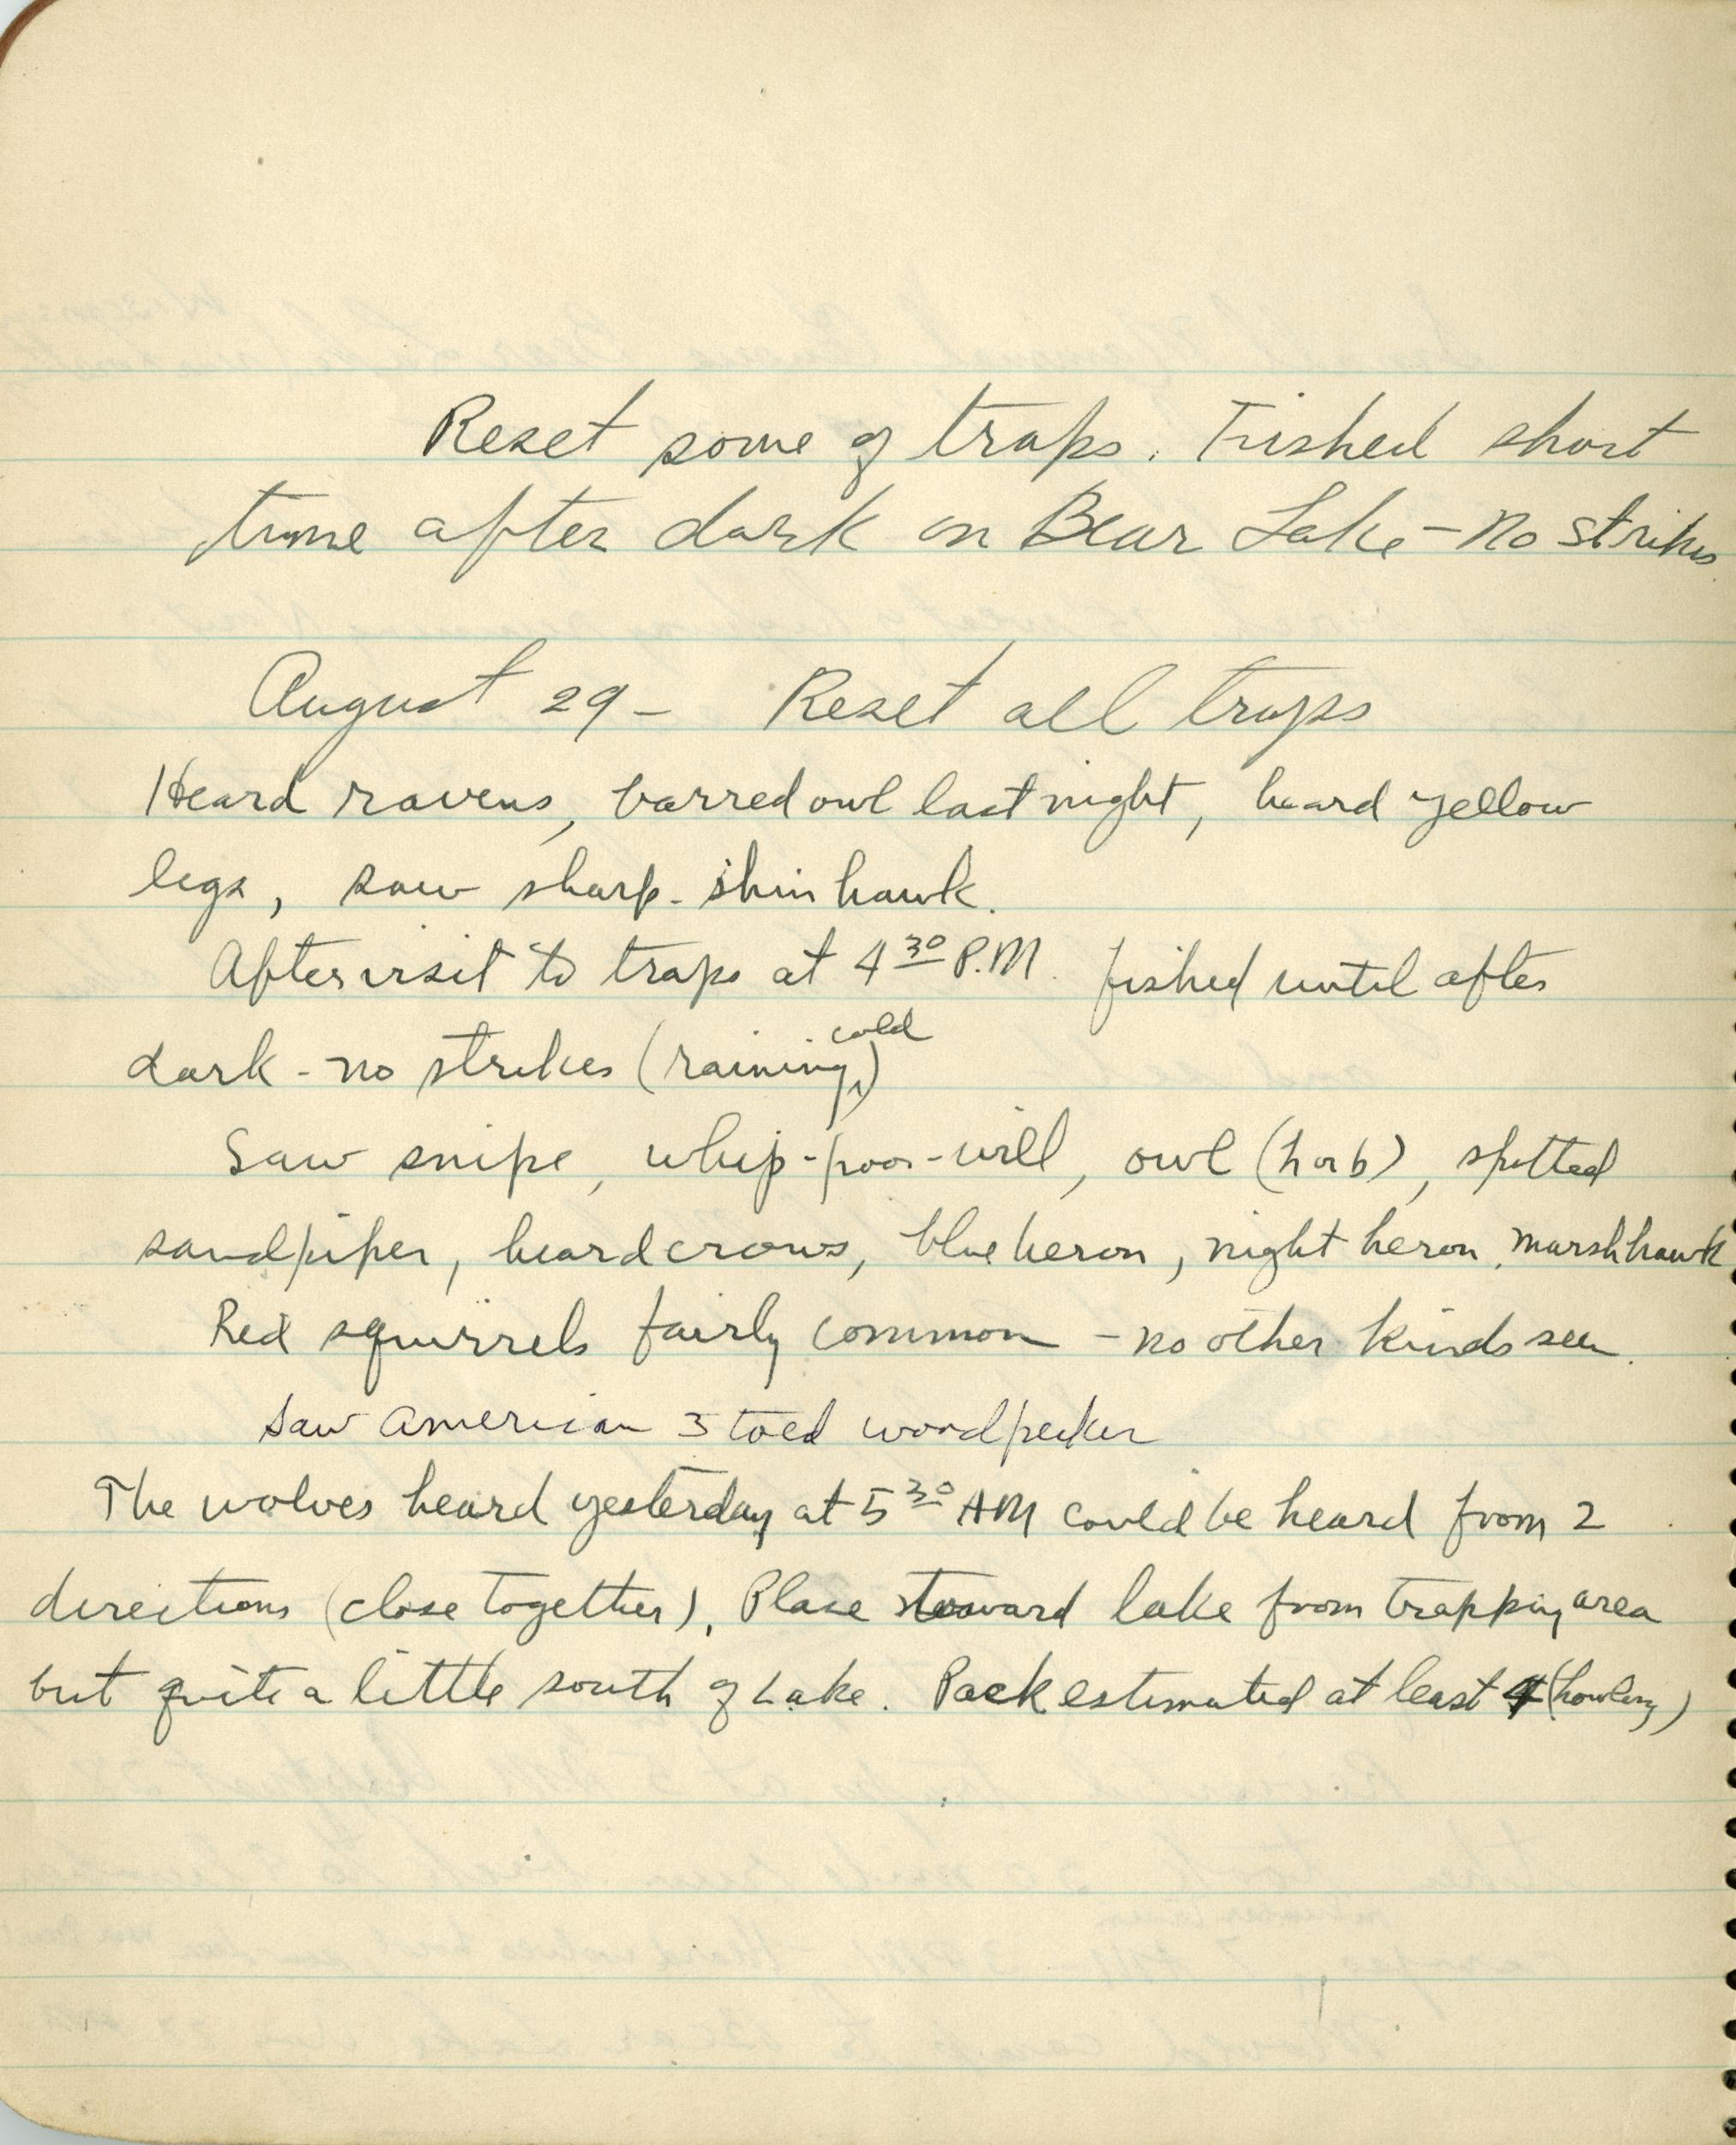 Reset some of traps. Fished short
time after dark on Bear Lake - No strikes
August 29 - Reset all traps
Heard ravens, barred owl last night, heard yellow
legs, saw sharp-shin hawk.
After visit to traps at 4 30 P.M. fished until after
dark - no strikes (raining, cold)
Saw snipe, whip-poor-will, owl (hab), spotted
sandpiper, heard crows, blue heron, night heron, marsh hawk
Red squirrels fairly common - no other kinds seen.
Saw American 3 toed woodpecker
The wolves heard yesterday at 5 30 AM could be heard from 2
directions (close together), Place toward lake from trapping area
but quite a little south of Lake. Pack estimated at least 4 (howling)